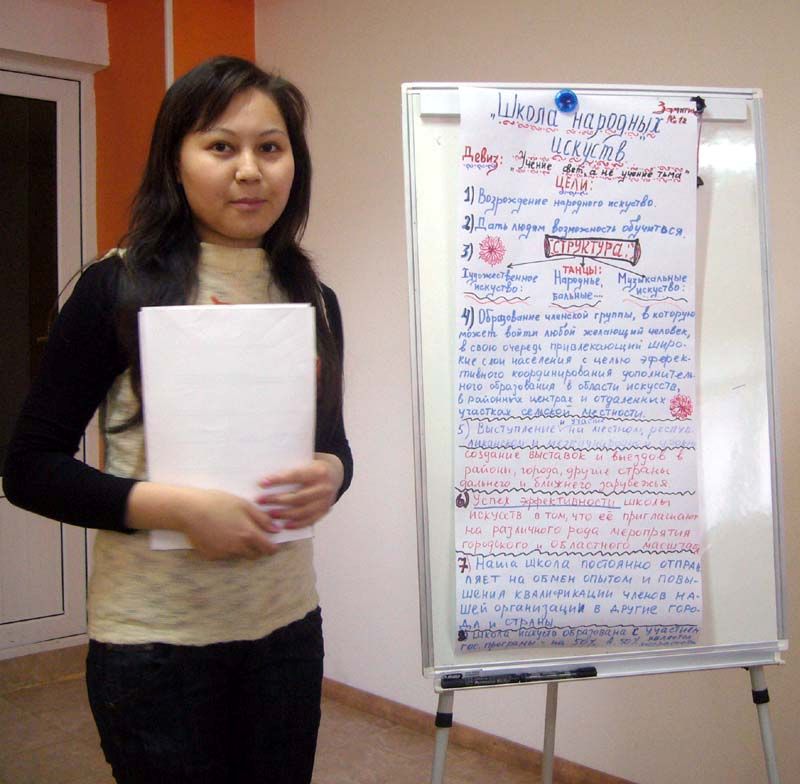 "Школа народных
Занятие
№12
искуств"
Девиз: "Учение свет, а не учение тьма"
ЦЕЛИ:
1) Возрождение народного искуство.
2) Дать людям возможность обучиться.
3) СТРУКТУРА:
Художественное искуство:
ТАНЦЫ: Народные, бальные...
Музыкальные искуство:
4) Образование членской группы, в которую
может войти любой желающий человек,
в свою очередь привлекающий широ-
кие слои населения с целью эффек-
тивного координирования дополнитель-
ного образования в области искусств,
в районных центрах и отдаленных
участках сельской местности.
и участие
5) Выступление на местном, респуб-
ликанском и международном уровне
создание выставок и выездов в
районы, города, другие страны
дальнего и ближнего зарубежья
6) Успех эффективности школы
искуств в том, что её приглашают
на различного рода меропрятия
городского и областного масштаб
7) Наша школа постоянно отправ
ляет на обмен опытом и повы-
шения квалификации членов на-
шей организации в другие горо-
да и страны
8 Школа искуств образована с участием
гос. програмы - на 50% а 50%